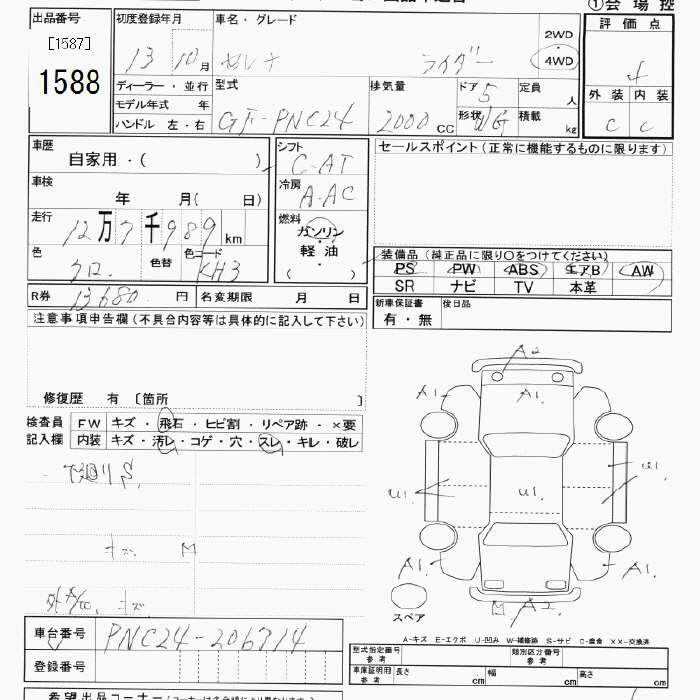 出品番号
[1587]
1588
初度登録年月
13 10月
車名・グレード
セレナ ライダー
2WD
4WD
①会場控
評価点
4
外装 内装
C C
ディーラー・並行
モデル年式 年
ハンドル 左・右
型式
GF-PNC24
排気量
2000 CC
ドア 5
形状 WG
定員 人
積載 kg
車歴
自家用・( )
車検
年 月( 日)
走行
12万7千989 km
色
クロ.
色替
色コード
KH3
シフト
C-AT
冷房
A-AC
燃料
ガソリン
・
軽油
( )
セールスポイント(正常に機能するものに限ります)
装備品(純正品に限り〇をつけてください)
PS PW ABS エアB AW
SR ナビ TV 本革
新車保証書
有・無
後日品
R券 13680 円
名変期限 月 日
注意事項申告欄(不具合内容等は具体的に記入して下さい)
修復歴 有 〔箇所 〕
検査員
記入欄
FW キズ・飛石・ヒビ割・リペア跡・×要
内装 キズ・汚レ・コゲ・穴・スレ・キレ・破レ
キズ M
キズ
A2
A1.
A1.
A1.
U1.
U1.
U1.
A1.
A1.
M A2.
スペア
A-キズ E-エクボ U-凹み W-補修跡 S-サビ C-腐食 XX-交換済
車台番号 PNC24-206714
登録番号
型式指定番号
参考
類別区分番号
参考
車庫証明用
参考
長さ cm 幅 cm 高さ cm
希望出品コーナー